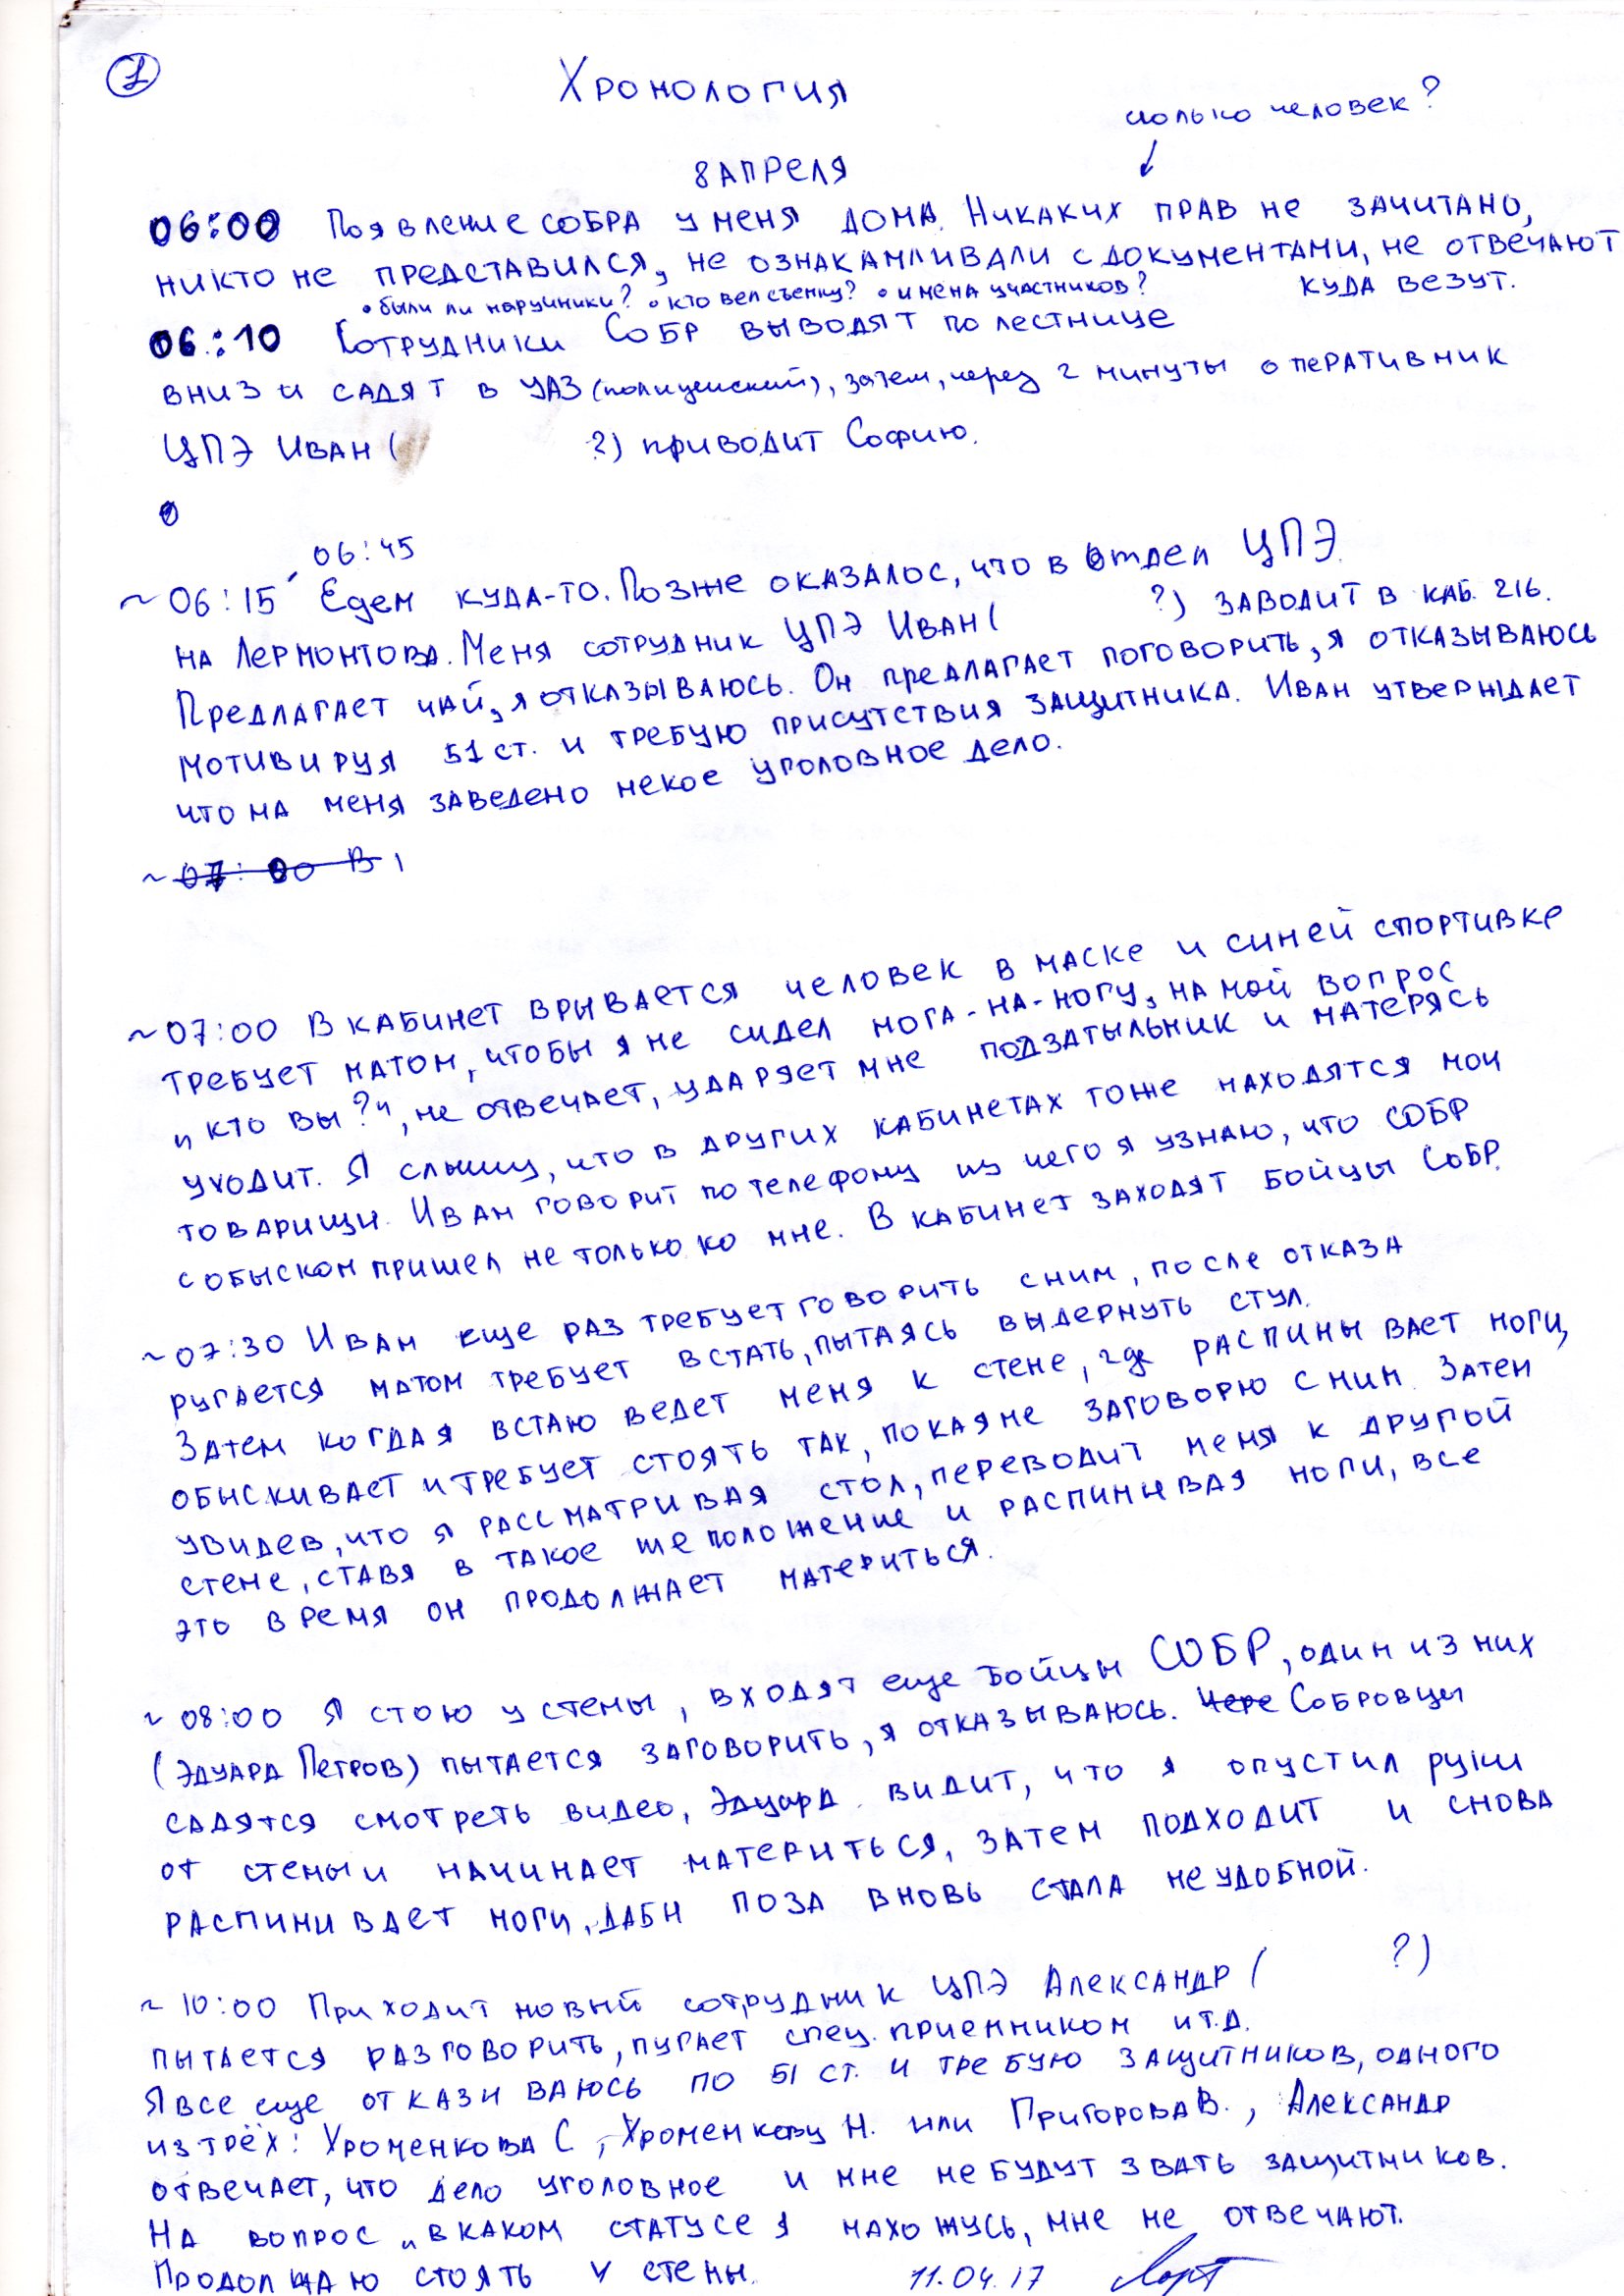 1
Хронология
сколько человек?
8 апреля
06:00 Появление СОБРа у меня дома. Никаких прав не зачитано,
никто не представился, не ознакамливали с документами, не отвечают
куда везут.
• были ли наручники? • кто вел съемку? • имена участников?
06:10 Сотрудники СОБР выводят по лестнице
вниз и садят в УАЗ (полицейский), затем, через 2 минуты оперативник
ЦПЭ Иван ( ?) приводит Софию.
06:45
~06:15 Едем куда-то. Позже оказалос, что в отдел ЦПЭ
на Лермонтова. Меня сотрудник ЦПЭ Иван ( ?) заводит в каб. 216.
Предлагает чай, я отказываюсь. Он предлагает поговорить, я отказываюсь
мотивируя 51 ст. и требую присутствия защитника. Иван утверждает
что на меня заведено некое уголовное дело.
~07:00 В
~07:00 В кабинет врывается человек в маске и синей спортивке
требует матом, чтобы я не сидел нога-на-ногу, на мой вопрос
„кто вы?", не отвечает, ударяет мне подзатыльник и матерясь
уходит. Я слышу, что в других кабинетах тоже находятся мои
товарищи. Иван говорит по телефону из чего я узнаю, что СОБР
с обыском пришел не только ко мне. В кабинет заходят бойцы СОБР.
~07:30 Иван еще раз требует говорить с ним, после отказа
ругается матом требует встать, пытаясь выдернуть стул.
Затем когда я встаю ведет меня к стене, где распинывает ноги,
обыскивает и требует стоять так, пока я не заговорю с ним. Затем
увидев, что я рассматривая стол, переводит меня к другой
стене, ставя в такое же положение и распинывая ноги, все
это время он продолжает материться.
~08:00 Я стою у стены, входят еще бойцы СОБР, один из них
(Эдуард Петров) пытается заговорить, я отказываюсь. Чере Собровцы
садятся смотреть видео, Эдуард видит, что я опустил руки
от стены и начинает материться, затем подходит и снова
распинивает ноги, дабы поза вновь стала неудобной.
~10:00 Приходит новый сотрудник ЦПЭ Александр ( ?)
пытается разговорить, пугает спец. приемником и т.д.
Я все еще отказиваюсь по 51 ст. и требую защитников, одного
из трёх: Хроменкова С, Хроменкову Н. или Пригорова В., Александр
отвечает, что дело уголовное и мне не будут звать защитников.
На вопрос „в каком статусе я нахожусь, мне не отвечают.
Продолжаю стоять у стены. 11.04.17